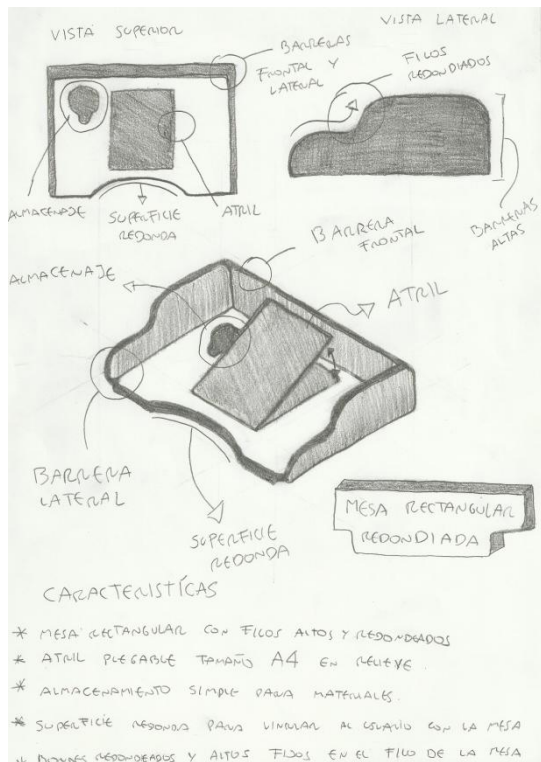 VISTA SUPERIOR
VISTA LATERAL
BARRERAS
FRONTAL Y
LATERAL
FILOS
REDONDIADOS
ALMACENAJE
SUPERFICIE
REDONDA
ATRIL
BARRERAS
ALTAS
BARRERA
FRONTAL
ALMACENAJE
ATRIL
BARRERA
LATERAL
SUPERFICIE
REDONDA
MESA RECTANGULAR
REDONDIADA
CARACTERISTÍCAS
* MESA RECTANGULAR CON FILOS ALTOS Y REDONDEADOS
* ATRIL PLEGABLE TAMAÑO A4 EN RELIEVE.
* ALMACENAMIENTO SIMPLE PARA MATERIALES.
* SUPERFICIE REDONDA PARA VINCULAR AL USUARIO CON LA MESA
* REDONDEADOS Y ALTOS FIJOS EN EL FILO DE LA MESA